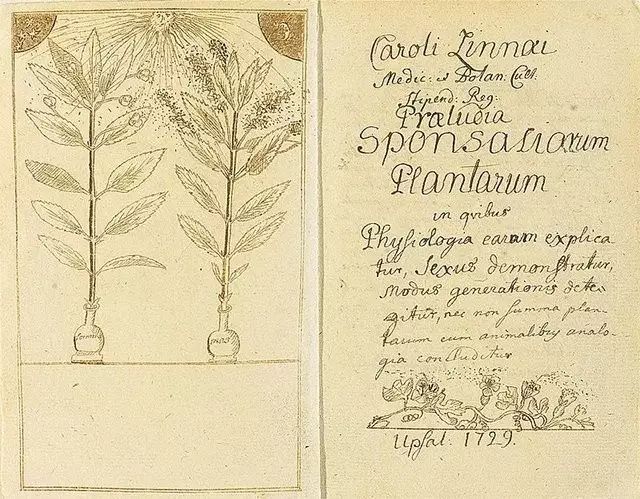 mas
Caroli Linnæi
Medic: & Botan: Cult.
Stipend: Reg:
Præludia
SPONSALIARUM
Plantarum
in qvibus
Physiologia earum explica
tur, Sexus demonstratur,
Modus generationis dete-
gitur, nec non summa plan-
tarum cum animalibus analo-
gia concluditur
Upsal. 1729.